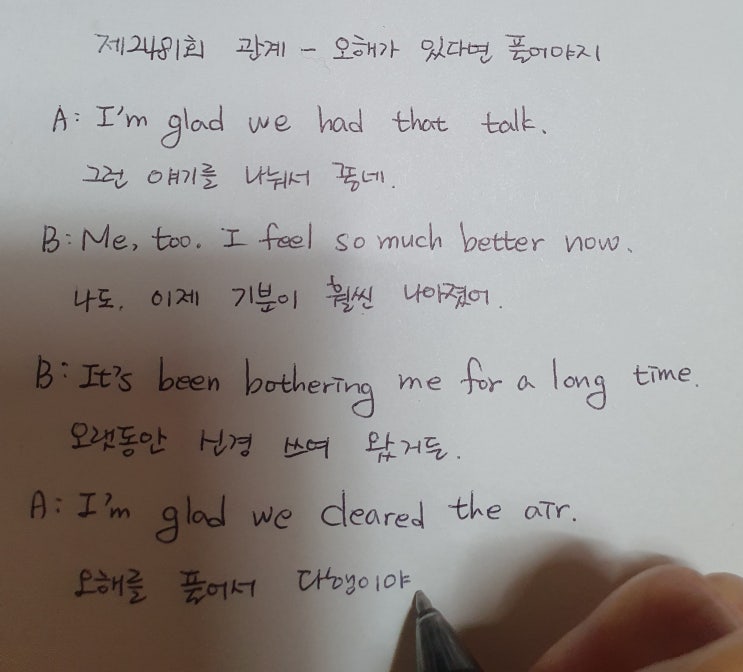 제2481회 관계 - 오해가 있다면 풀어야지
A: I'm glad we had that talk.
그런 얘기를 나눠서 좋네.
B: Me, too. I feel so much better now.
나도. 이제 기분이 훨씬 나아졌어.
B: It's been bothering me for a long time.
오랫동안 신경 쓰여 왔거든.
A: I'm glad we cleared the air.
오해를 풀어서 다행이야